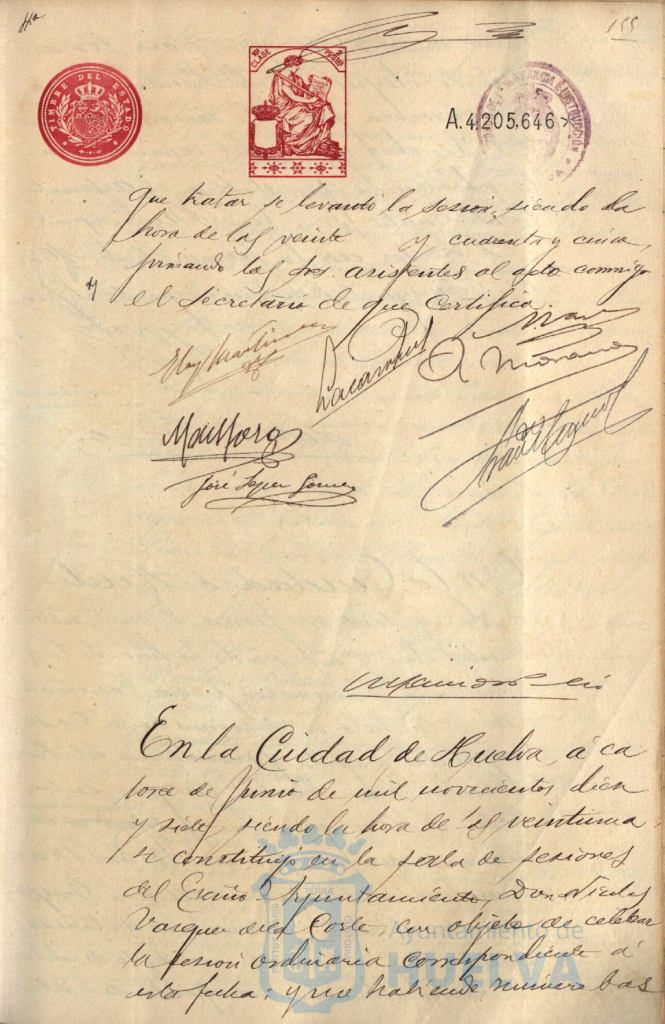 155
TIMBRE DEL ESTADO
10ª CLASE
2 PESETAS
A.4.205,646
que tratar se levantó la sesión, siendo la
hora de las veinte y cuarenta y cinco,
firmando los sres. asistentes al acto conmigo
el Secretario de que Certifico.
Eloy Martin
R. Moreno
José López Gómez
En la Ciudad de Huelva, á ca
torce de Junio de mil novecientos diez
y siete, siendo la hora de las veintiuna
se constituyó en la sala de sesiones
del Excmo. Ayuntamiento, Don Nicolas
Vazquez de la Corte, con objeto de celebrar
la sesión ordinaria correspondiente á
esta fecha; y no habiendo número bas
Ayuntamiento de
HUELVA